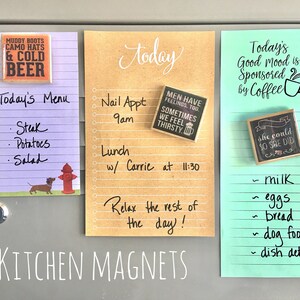 MUDDY BOOTS
CAMO HATS
& COLD
BEER
Today's Menu
· Steak
· Potatoes
· Salad
today
Nail Appt
9am
MEN HAVE
FEELINGS TOO
SOMETIMES
WE FEEL
THIRSTY
Lunch
w/ Carrie at 11:30
Relax the rest of
the day!
Today's
Good Mood is
Sponsored
by Coffee
she could
so she did
~ milk
~ eggs
~ bread
~ dog foo
~ dish de
KITCHEN MAGNETS